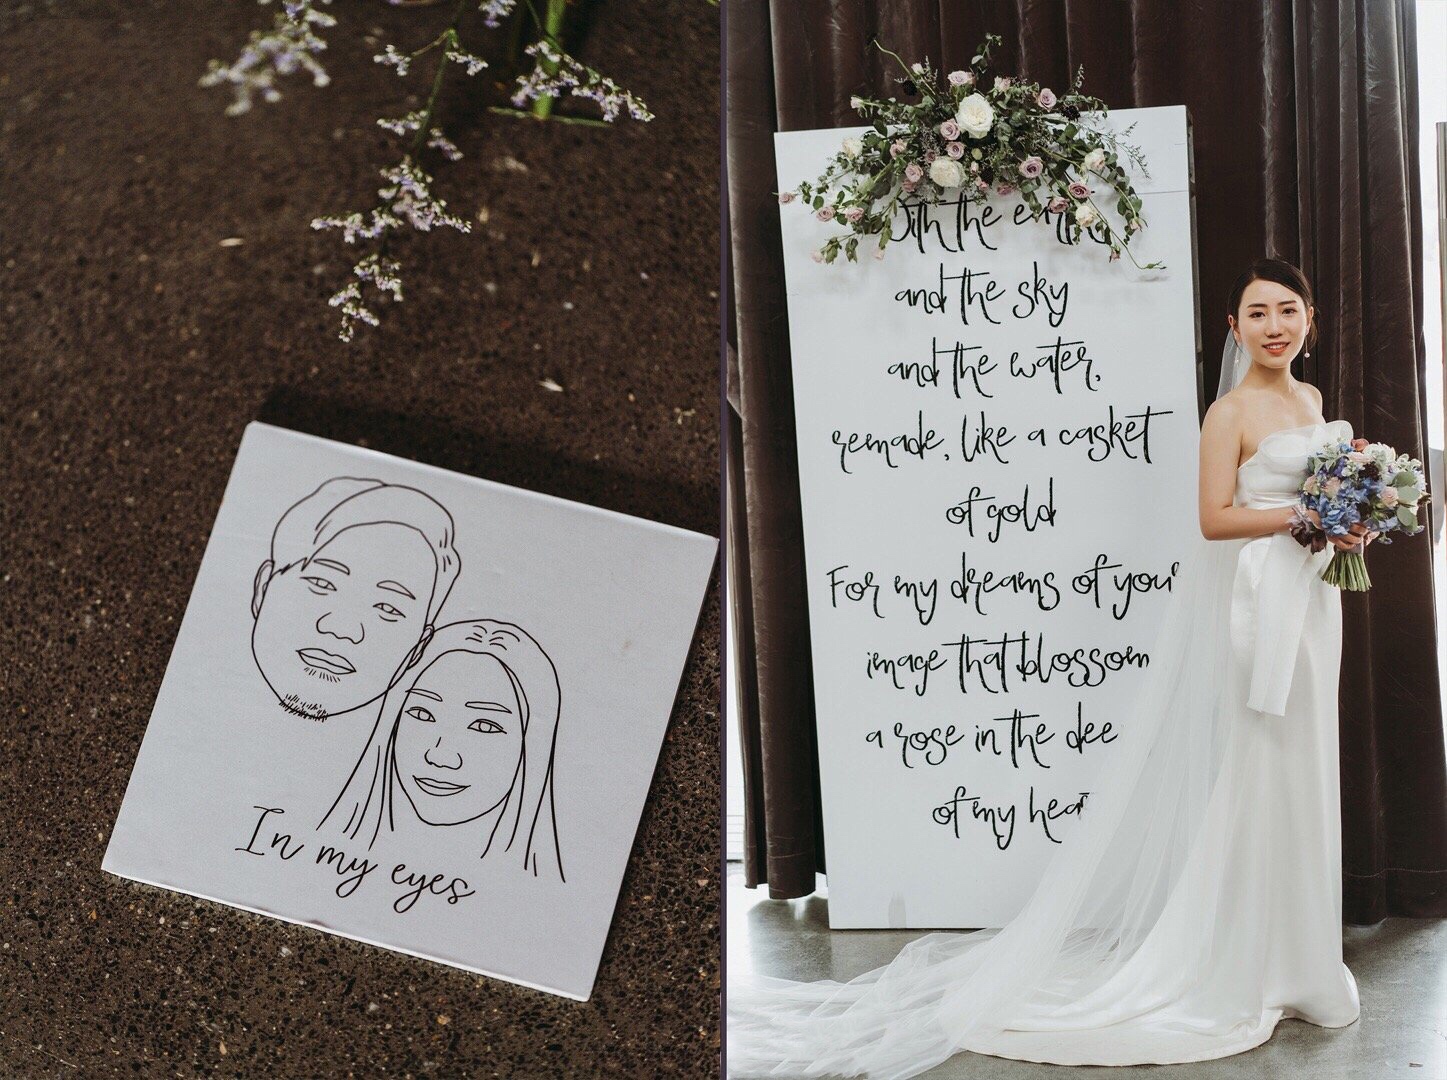 In my eyes
With the earth
and the sky
and the water,
remade, like a casket
of gold
For my dreams of your
image that blossom
a rose in the dee
of my hear